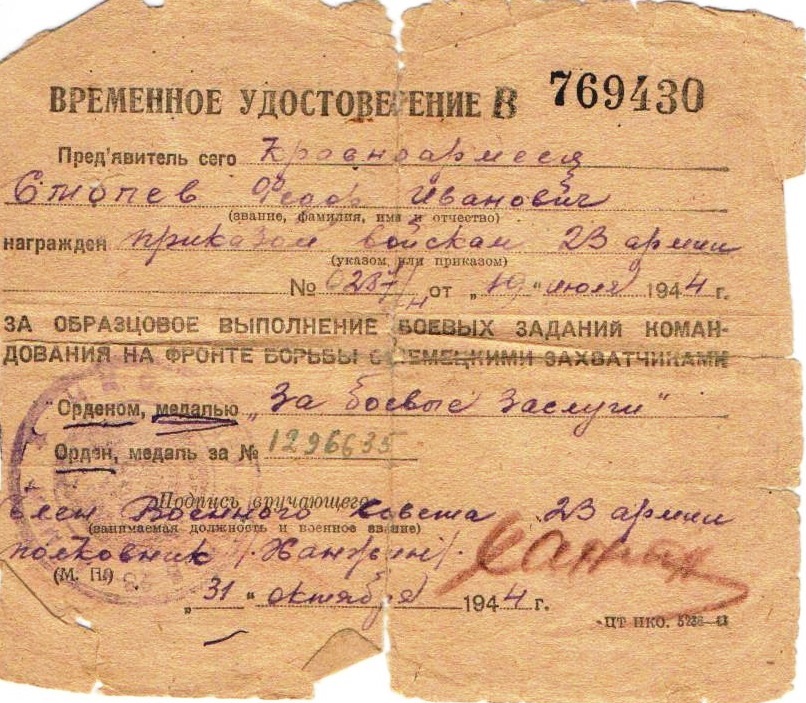 ВРЕМЕННОЕ УДОСТОВЕРЕНИЕ В 769430
Пред'явитель сего Красноармеец
Федор Иванович
(звание, фамилия, имя и отчество)
награжден приказом войскам 23 армии
(указом или приказом)
№ 0287/н от „19“ июля 1944 г.
ЗА ОБРАЗЦОВОЕ ВЫПОЛНЕНИЕ БОЕВЫХ ЗАДАНИЙ КОМАН-
ДОВАНИЯ НА ФРОНТЕ БОРЬБЫ С НЕМЕЦКИМИ ЗАХВАТЧИКАМИ
Орденом, медалью „За боевые заслуги“
Орден, медаль за № 1296635
Подпись вручающего
Член Военного Совета 23 армии
(занимаемая должность и военное звание)
полковник
(М. П.)
„31“ октября 1944 г.
ЦТ НКО.